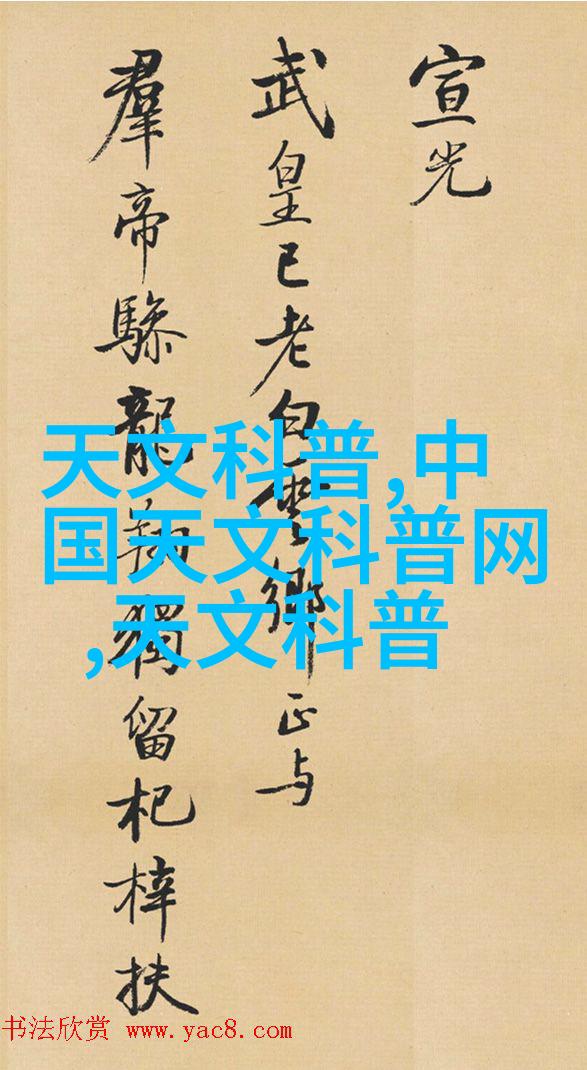 宣光
武皇已老白雲鄉正与
羣帝驂龍翔獨留杞梓扶
天文科普,中
国天文科普网
,天文科普
书法欣赏 www.yac8.com